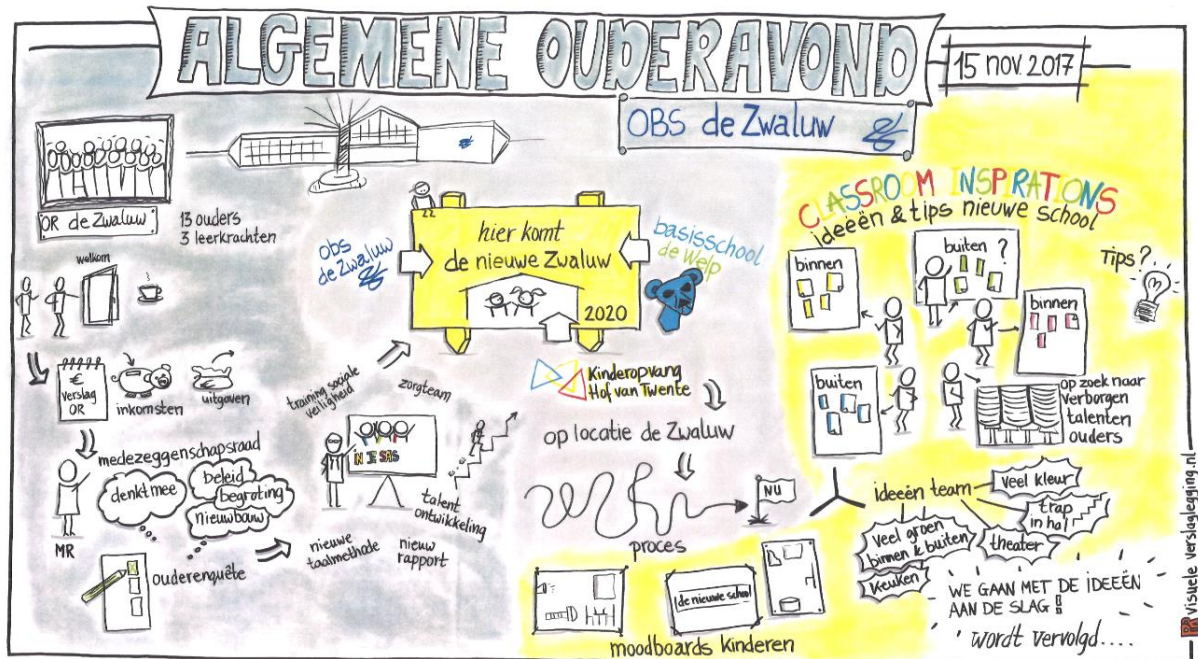 ALGEMENE OUDERAVOND
15 NOV. 2017
OBS de Zwaluw
OR de Zwaluw
13 ouders
3 leerkrachten
welkom
€
verslag
OR
inkomsten
uitgaven
medezeggenschapsraad
denkt mee
beleid
begroting
nieuwbouw
MR
ouderenquête
training sociale
veiligheid
zorgteam
IN JE SAS
talent
ontwikkeling
nieuwe
taalmethode
nieuw
rapport
obs
de Zwaluw
hier komt
de nieuwe Zwaluw
2020
basisschool
de Welp
Kinderopvang
Hof van Twente
op locatie de Zwaluw
NU
proces
de nieuwe school
moodboards kinderen
CLASSROOM INSPIRATIONS
ideeën & tips nieuwe school
binnen
buiten ?
binnen
Tips?
buiten
op zoek naar
verborgen
talenten
ouders
ideeën team
veel kleur
trap
in hal
theater
veel groen
binnen & buiten
keuken
WE GAAN MET DE IDEEËN
AAN DE SLAG!
wordt vervolgd....
visuele verslaglegging.nl